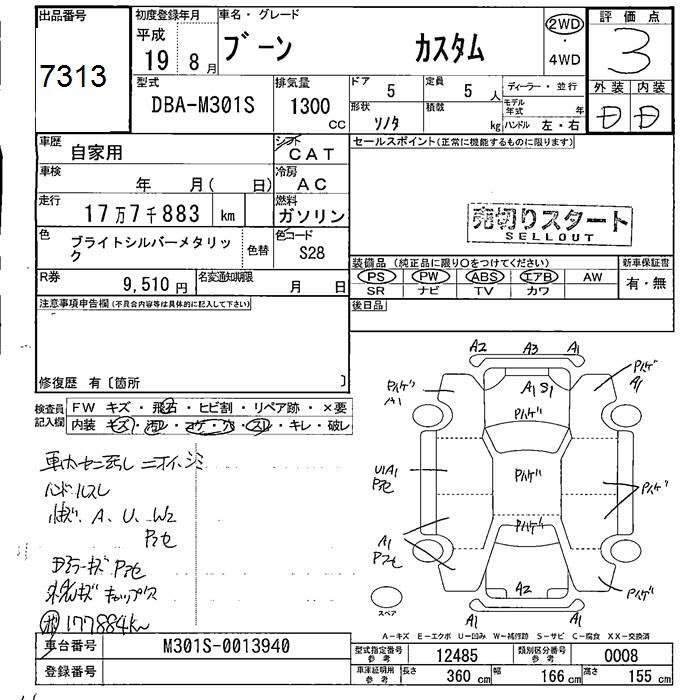 出品番号
7313
初度登録年月
平成
19 8月
車名・グレード
ブーン カスタム
2WD
・
4WD
評価点
3
外装 内装
D D
型式
DBA-M301S
排気量
1300
CC
ドア
5
定員
5 人
形状
ソノタ
積載
kg
ディーラー・並行
モデル年式 年
ハンドル 左・右
車歴
自家用
シフト
CAT
車検
年 月( 日)
冷房
AC
走行
17万7千883 km
燃料
ガソリン
色
ブライトシルバーメタリック
色替
色コード
S28
R券
9,510円
名変通知期限
月 日
セールスポイント(正常に機能するものに限ります)
売切りスタート
SELLOUT
装備品 (純正品に限り○をつけてください)
PS PW ABS エアB AW
SR ナビ TV カワ
新車保証書
有・無
後日品
注意事項申告欄(不具合内容等は具体的に記入して下さい)
修復歴 有〔箇所 〕
検査員記入欄
FW キズ・飛石・ヒビ割・リペア跡・×要
内装 キズ・汚レ・コゲ・穴・スレ・キレ・破レ
ハンドルスレ
A、U、W2
177884km
A2 A3 A1
Pハゲ
A1
A1 S1
Pハゲ
Pハゲ
A1
U1A1
Pハゲ
Pハゲ
A1
Pハゲ
A2
Pハゲ
A1 A1
スペア
A-キズ E-エクボ U-凹み W-補修跡 S-サビ C-腐食 XX-交換済
車台番号
M301S-0013940
登録番号
型式指定番号
参考
12485
類別区分番号
参考
0008
車庫証明用
参考
長さ 360 cm
幅 166 cm
高さ 155 cm